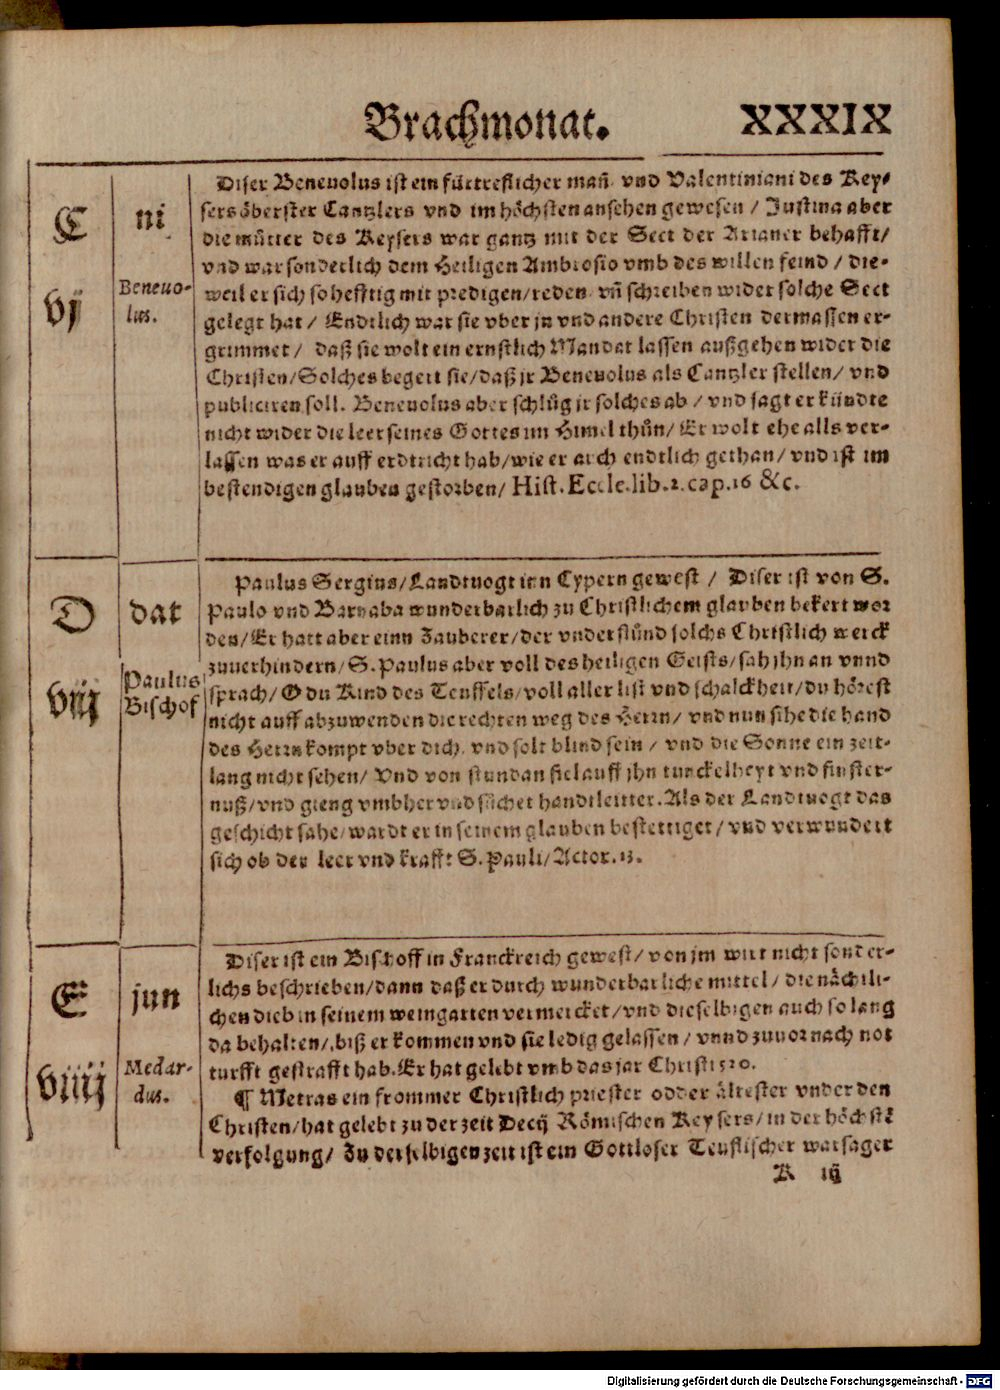 Brachmonat. XXXIX
C
ni
vj
Beneuo-
lus.
Diser Beneuolus ist ein fürtreflicher mañ vnd Valentiniani des Key-
sers öberster Cantzlers vnd im höchsten ansehen gewesen / Justina aber
die můtter des Keysers war gantz mit der Sect der Arianer behafft/
vnd war sonderlich dem Heiligen Ambrosio vmb des willen feind / die-
weil er sich so hefftig mit predigen/reden vñ schreiben wider solche Sect
gelegt hat / Endtlich war sie vber jn vnd andere Christen dermassen er-
grimmet / daß sie wolt ein ernstlich Mandat lassen außgehen wider die
Christen/Solches begert sie/daß jr Beneuolus als Cantzler stellen/ vnd
publiciren soll. Beneuolus aber schlůg jr solches ab / vnd sagt er kündte
nicht wider die leer seines Gottes im Himel thůn/ Er wolt ehe alls ver-
lassen was er auff erdtricht hab/wie er auch endtlich gethan/ vnd ist im
bestendigen glauben gestorben/ Hist. Eccle.lib.2.cap.16 &c.
D
dat
viij
Paulus
Bischof
Paulus Sergius/Landtuogt inn Cypern gewest / Diser ist von S.
Paulo vnd Barnaba wunderbarlich zu Christlichem glauben bekert wor
den/Er hatt aber einn Zauberer/der vnderstůnd solchs Christlich werck
zuuerhindern/S.Paulus aber voll des heiligen Geists/sah jhn an vnnd
sprach/O du Kind des Teuffels/voll aller list vnd schalckheit/du hörest
nicht auff abzuwenden die rechten weg des Herrn/ vnd nun sihe die hand
des Herrn kompt vber dich, vnd solt blind sein / vnd die Sonne ein zeit-
lang nicht sehen/ Vnd von stundan fiel auff jhn tunckelheyt vnd finster-
nuß/vnd gieng vmbher vnd sůchet handtleitter. Als der Landtuogt das
geschicht sahe/wardt er in seinem glauben bestettiget/ vnd verwundert
sich ob der leer vnd krafft S. Pauli/Actor.13.
E
jun
viiij
Medar-
dus.
Diser ist ein Bischoff in Franckreich gewest/ von jm wirt nicht sonder-
lichs beschrieben/dann daß er durch wunderbarliche mittel / die nächtli-
chen dieb in seinem weingarten vermercket/vnd dieselbigen auch so lang
da behalten/biß er kommen vnd sie ledig gelassen / vnnd zuuor nach not
turfft gestrafft hab.Er hat gelebt vmb das jar Christi 520.
¶ Metras ein frommer Christlich priester odder ältester vnder den
Christen/hat gelebt zu der zeit Decij Römischen Keysers/in der höchstē
verfolgung/ Zu derselbigen zeit ist ein Gottloser Teuflischer warsager
K iij
Digitalisierung gefördert durch die Deutsche Forschungsgemeinschaft - DFG